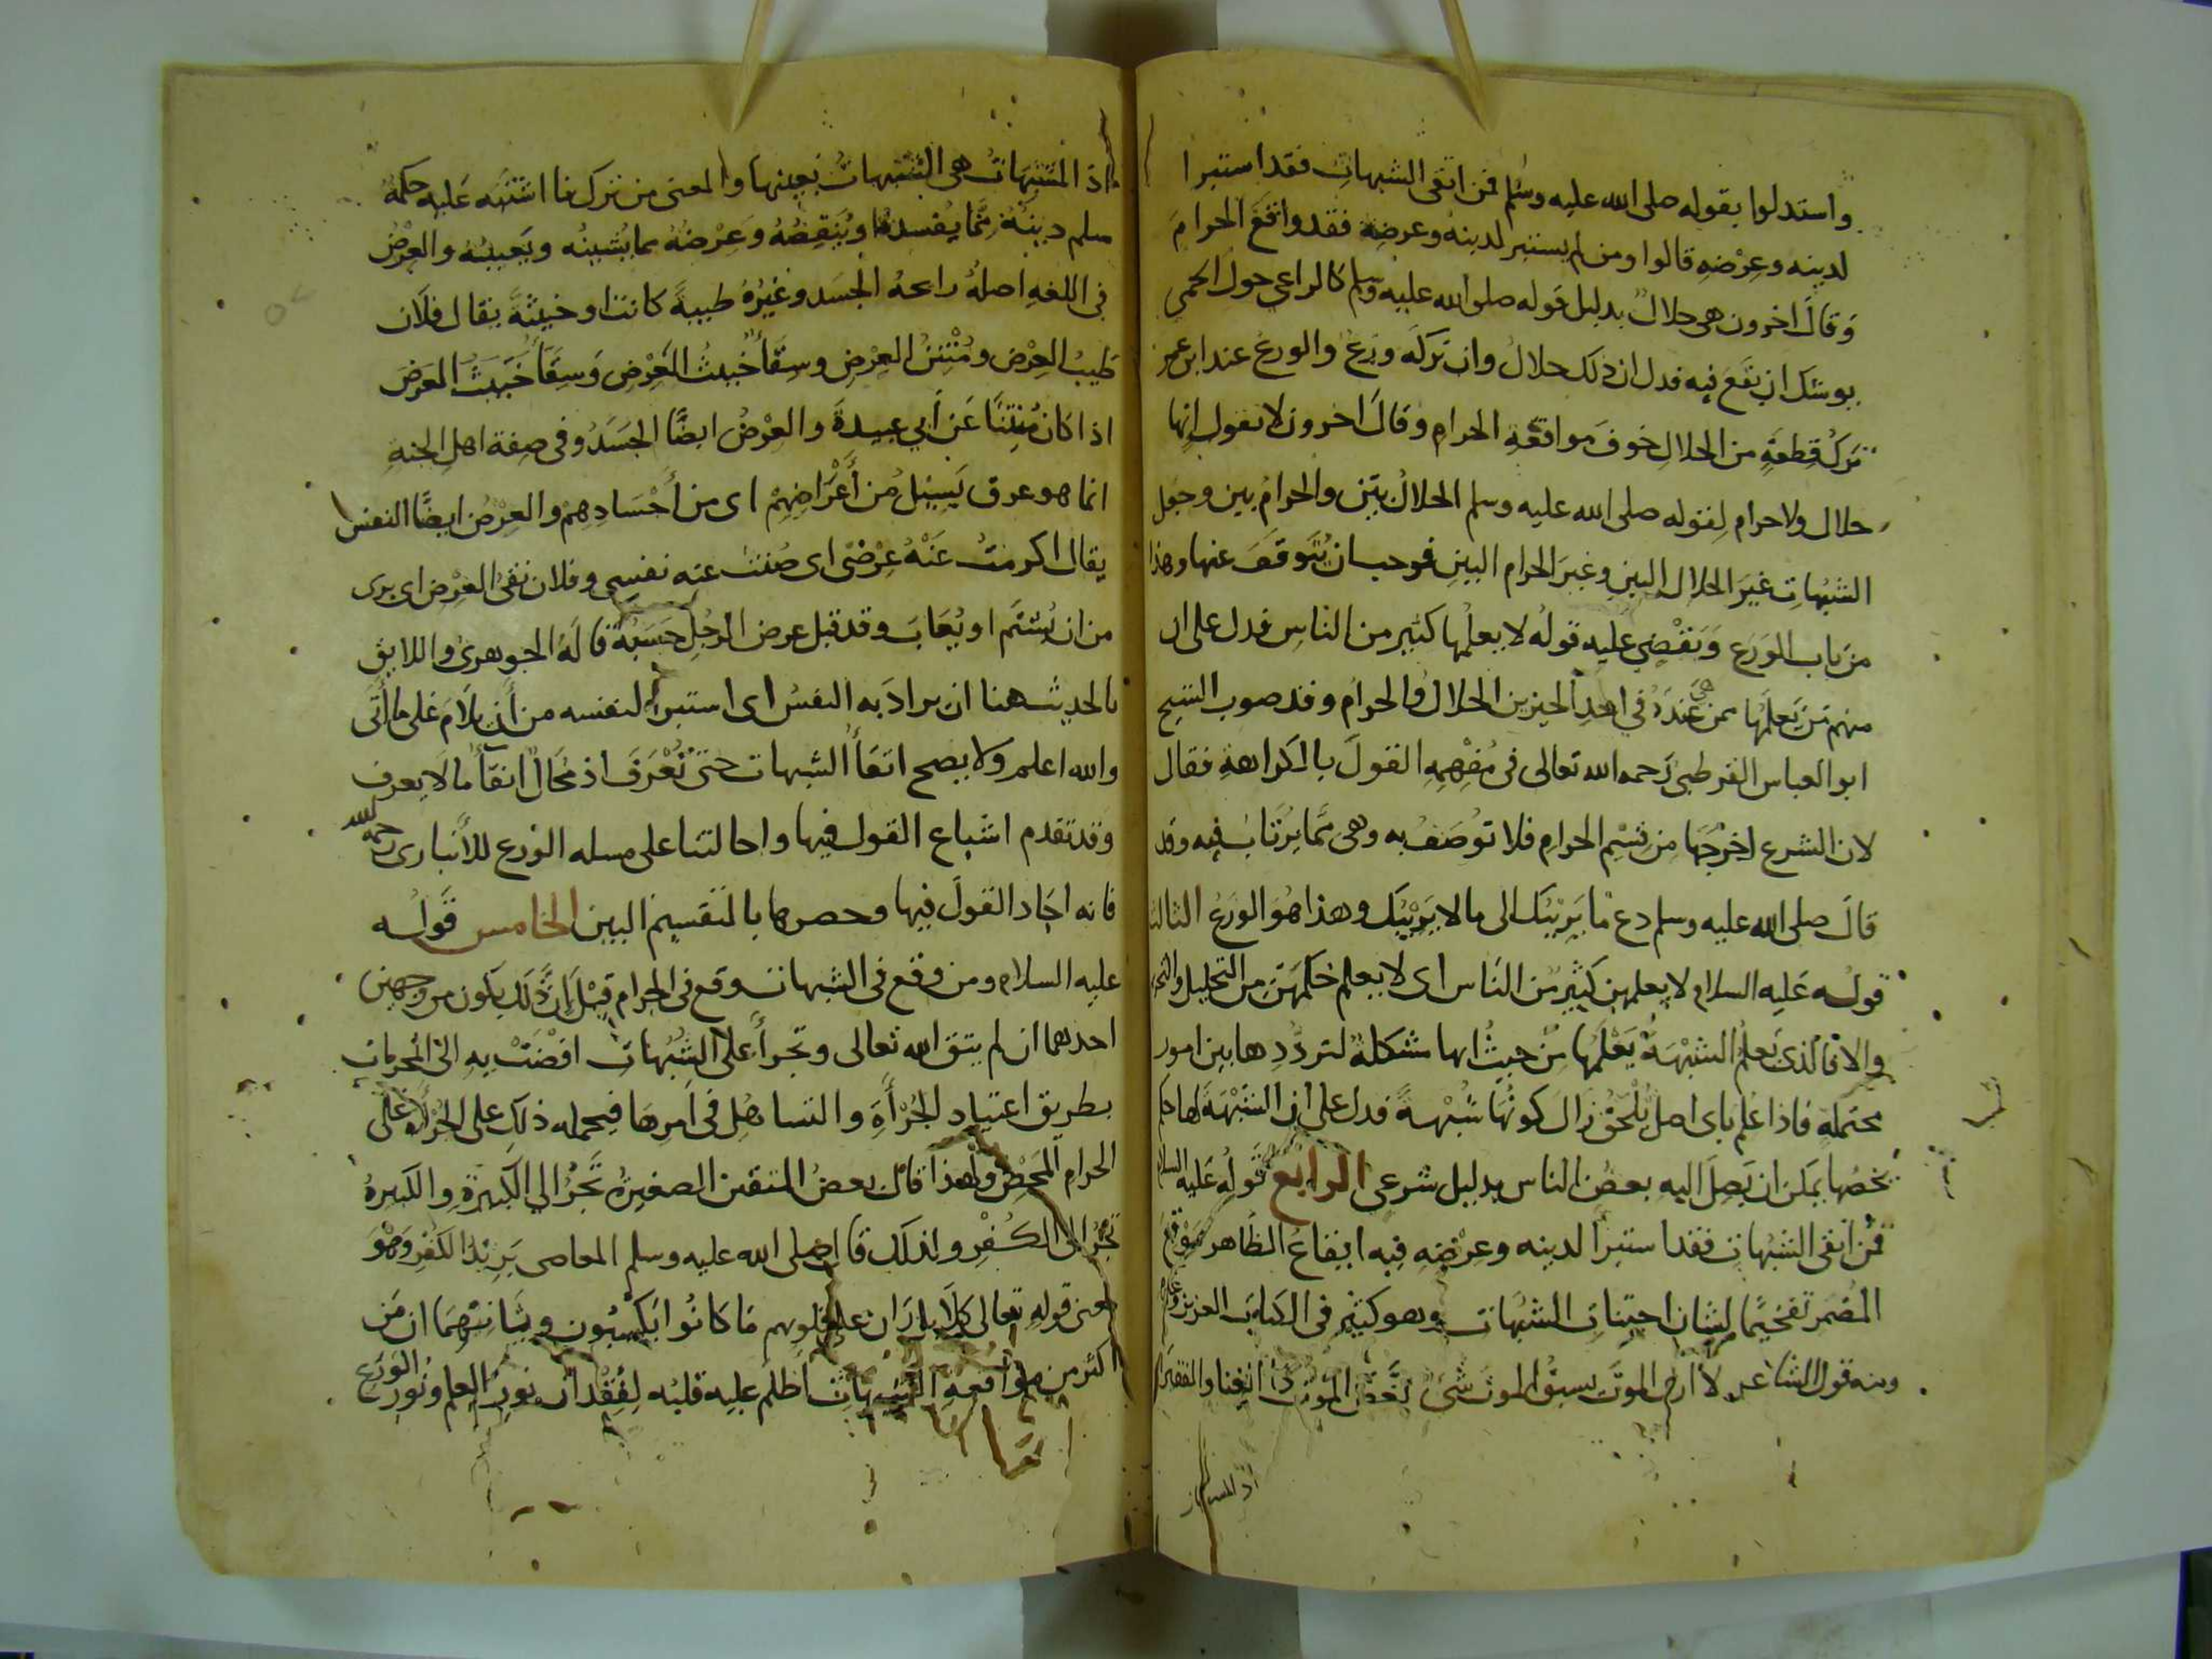 واستدلوا بقوله صلى الله عليه وسلم فمن اتقى الشبهات فقد استبرا
لدينه وعرضه قالوا ومن لم يستبر لدينه وعرضه فقد واقع الحرام
وقال اخرون هى حلال بدليل قوله صلى الله عليه وسلم كالراعى حول الحمى
يوشك ان يقع فيه فدل ان ذلك حلال وان تركه ورع والورع عند ابن عمر
ترك قطعة من الحلال خوف مواقعة الحرام وقال اخرون لا نقول انها
حلال ولا حرام لقوله صلى الله عليه وسلم الحلال بين والحرام بين وجعل
الشبهات غير الحلال البين وغير الحرام البين فوجب ان نتوقف عنها وهذا
من باب الورع ويقضى عليه قوله لا يعلمها كثير من الناس فدل على ان
منهم من يعلمها فمن هى عنده فى احد الحيزين الحلال والحرام وقد صوب الشيخ
ابو العباس القرطبى رحمه الله تعالى فى مفهمه القول بالكراهة فقال
لان الشرع اخرجها من قسم الحرام فلا توصف به وهى مما يرتاب فيه وقد
قال صلى الله عليه وسلم دع ما يريبك الى ما لا يريبك وهذا هو الورع الثالث
قوله عليه السلام لا يعلمهن كثير من الناس اى لا يعلم حكمهن من التحليل والتحر
والا فالذى يعلم الشبهة يعلمها من حيث انها مشكلة لترددها بين امور
محتملة فاذا علم باى اصل تلحق زال كونها شبهة فدل على ان الشبهة لها حكم
يخصها يمكن ان يصل اليه بعض الناس بدليل شرعى الرابع قوله عليه السلام
فمن اتقى الشبهات فقد استبرا لدينه وعرضه فيه ايقاع الظاهر موقع
المضمر تفخيما لشان اجتناب الشبهات وهو كثير فى الكتاب العزيز وغيره
ومنه قول الشاعر لا ارى الموت يسبق الموت شئ نغص الموت ذا الغنا والفقيرا
اذ المشبهات
اذ المشتبهات هى الشبهات بعينها والمعنى من ترك ما اشتبه عليه حكمه
سلم دينه مما يفسده او ينقصه وعرضه مما يشينه ويعيبه والعرض
فى اللغه اصله رائحه الجسد وغيره طيبة كانت او خبيثة يقال فلان
طيب العرض ومنتن العرض وسقا خبيث العرض وسقا خبيث العرض
اذا كان منتنا عن أبي عبيدة والعرض ايضا الجسد وفى صفة اهل الجنه
انما هو عرق يسيل من أعراضهم اى من أجسادهم والعرض ايضا النفس
يقال اكرمت عنه عرضى اى صنت عنه نفسى وفلان نقى العرض اى برى
من ان يشتم او يعاب وقد قيل عرض الرجل حسبه قاله الجوهرى واللايق
بالحديث هنا ان يراد به النفس اى استبرأ لنفسه من أن يلام على ما أتى
والله اعلم ولا يصح اتقأ الشبهات حتى تعرف اذ محال اتقأ ما لا يعرف
وقد تقدم اشباع القول فيها واحالتنا على مسله الورع للأنبارى رحمه الله
فانه اجاد القول فيها وحصرها بالتقسيم البين الخامس قوله
عليه السلام ومن وقع فى الشبهات وقع فى الحرام قيل ان ذلك يكون من وجهين
احدهما ان لم يتق الله تعالى وتجرأ على الشبهات افضت به الى المحرمات
بطريق اعتياد الجرأة والتساهل فى امرها فيحمله ذلك على الجرأة على
الحرام المحض ولهذا قال بعض المتقين الصغيرة تجر الي الكبيرة والكبيرة
تجر الى الكفر ولذلك قال صلى الله عليه وسلم المعاصى بريد الكفر وهو
معنى قوله تعالى كلا بل ران على قلوبهم ما كانوا يكسبون وثانيهما ان من
اكثر من مواقعة الشبهات اظلم عليه قلبه لفقدان نور العلم ونور الورع